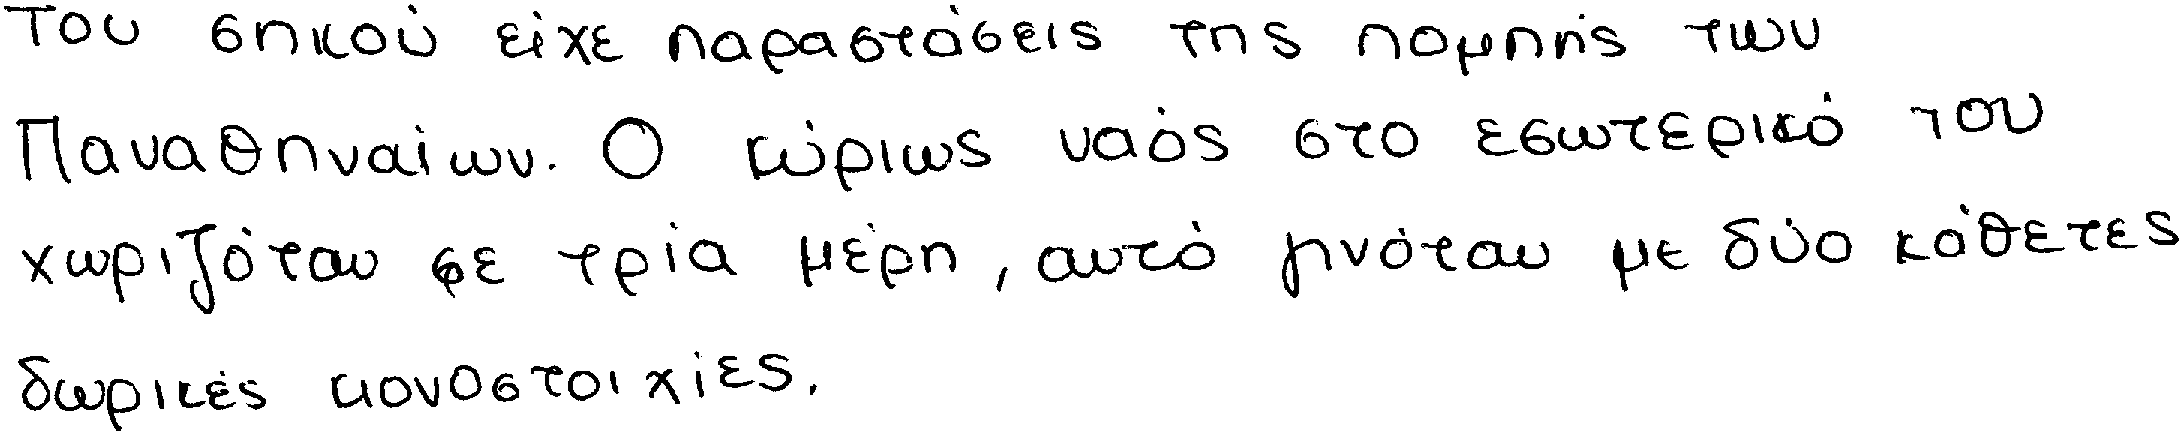 του σηκού είχε παραστάσεις της πομπής των
Παναθηναίων. Ο κύριως ναός στο εσωτερικό του
χωριζόταν σε τρία μέρη, αυτό γινόταν με δύο κάθετες
δωρικές κιονοστοιχίες.